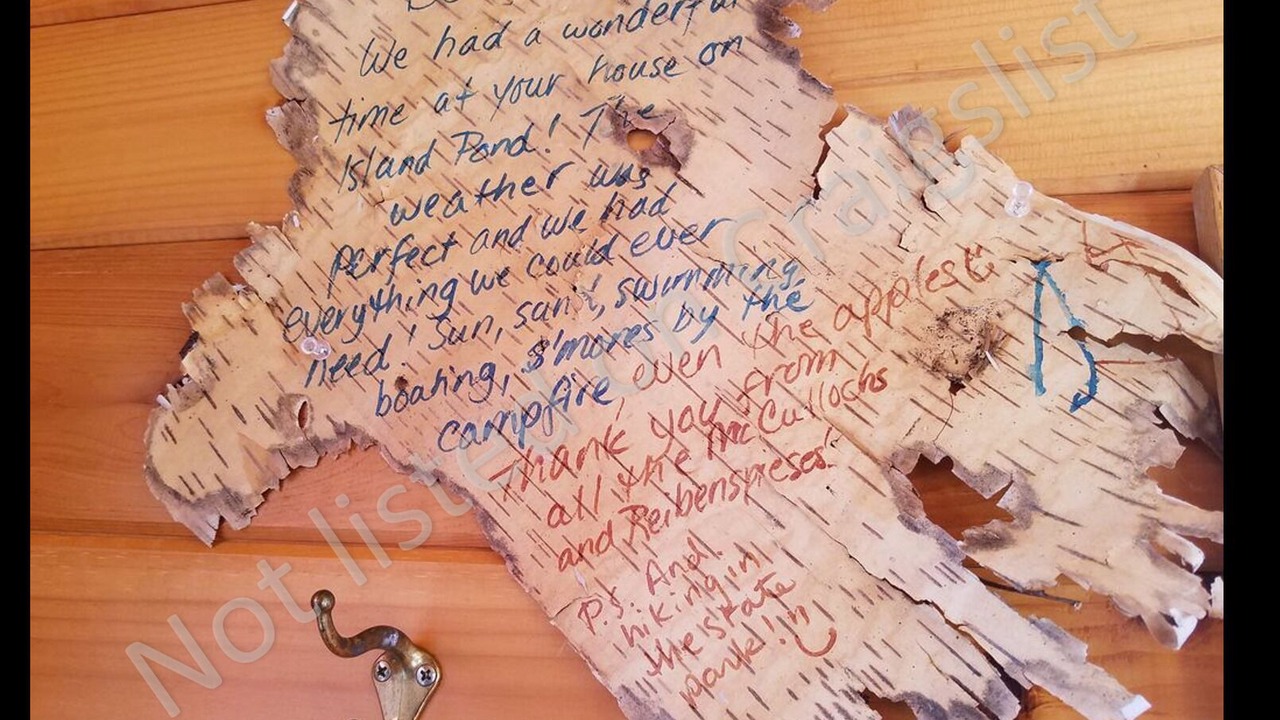 We had a wonderful
time at your house on
Island Pond! The
weather was
perfect and we had
everything we could ever
need! Sun, sand, swimming
boating, s'mores by the
campfire even the applest
Thank you from
all the McCullochs
and Reibenspieses!
P.S. And!
hiking in
the state
park!
Not listed on Craitslist